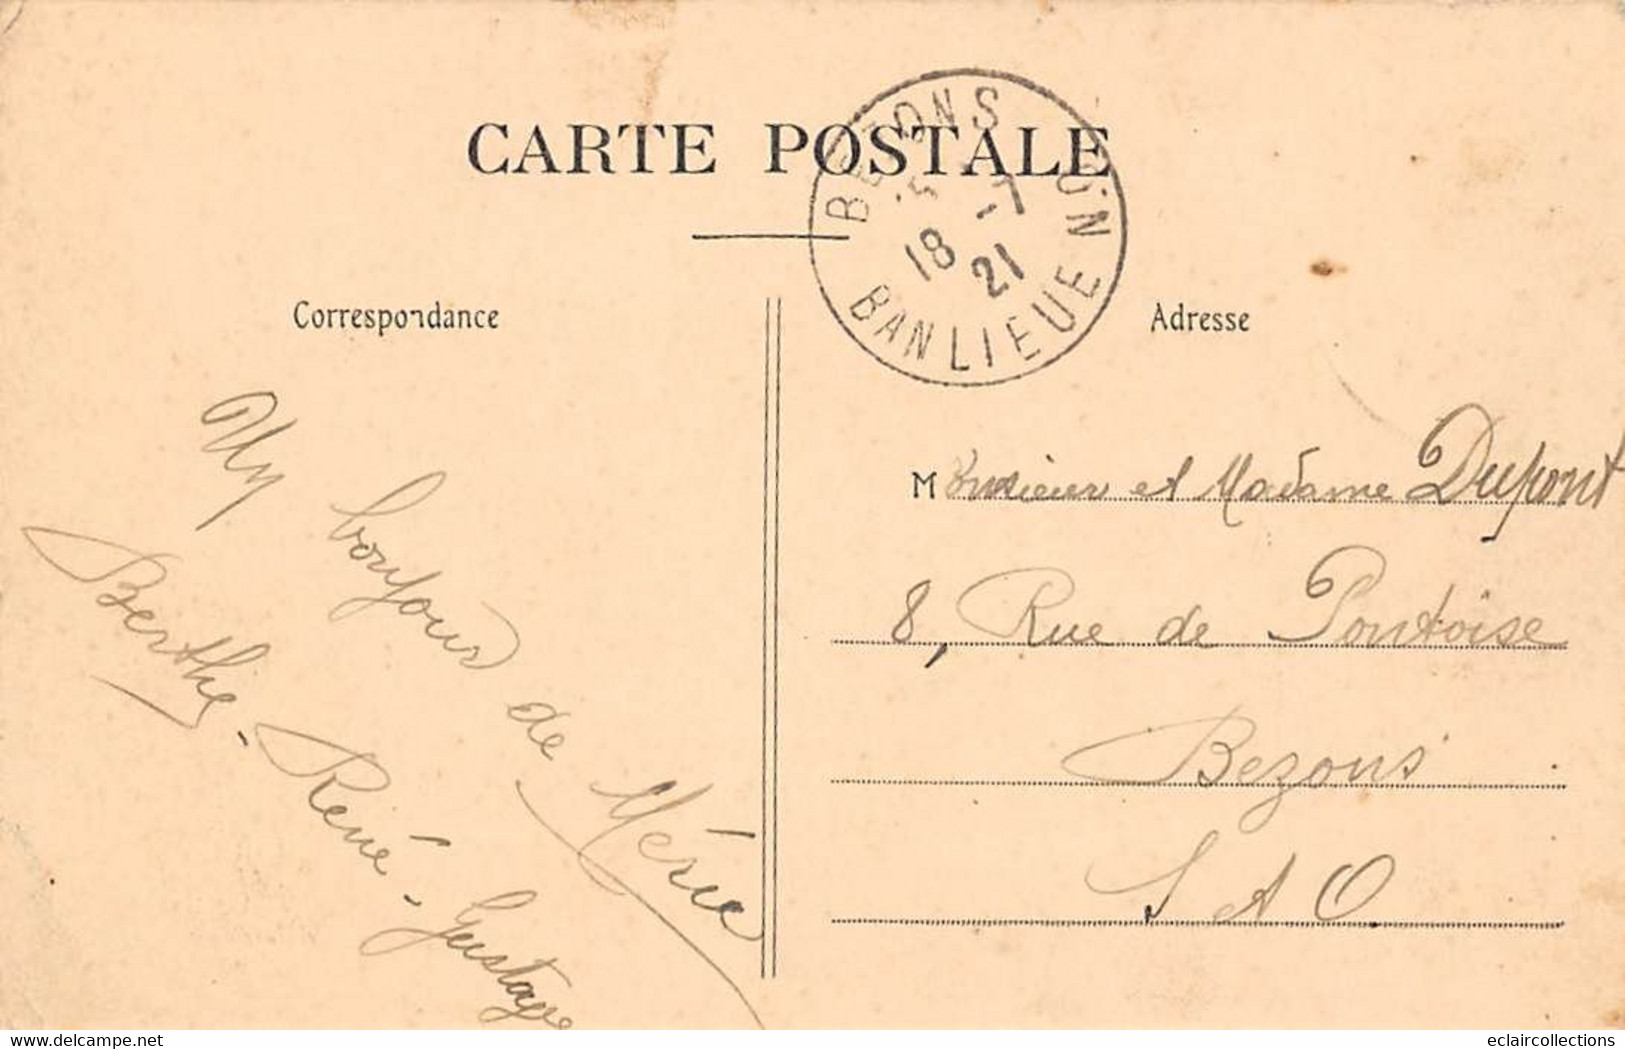 CARTE POSTALE
BEZONS
5 -7
18 21
BANLIEUE
Correspondance
Adresse
Un bonjour de Mérie
Berthe - René - Gustave
Monsieur et Madame Dupont
8, Rue de Pontoise
Bezons
S et O
delcampe.net
eclaircollections